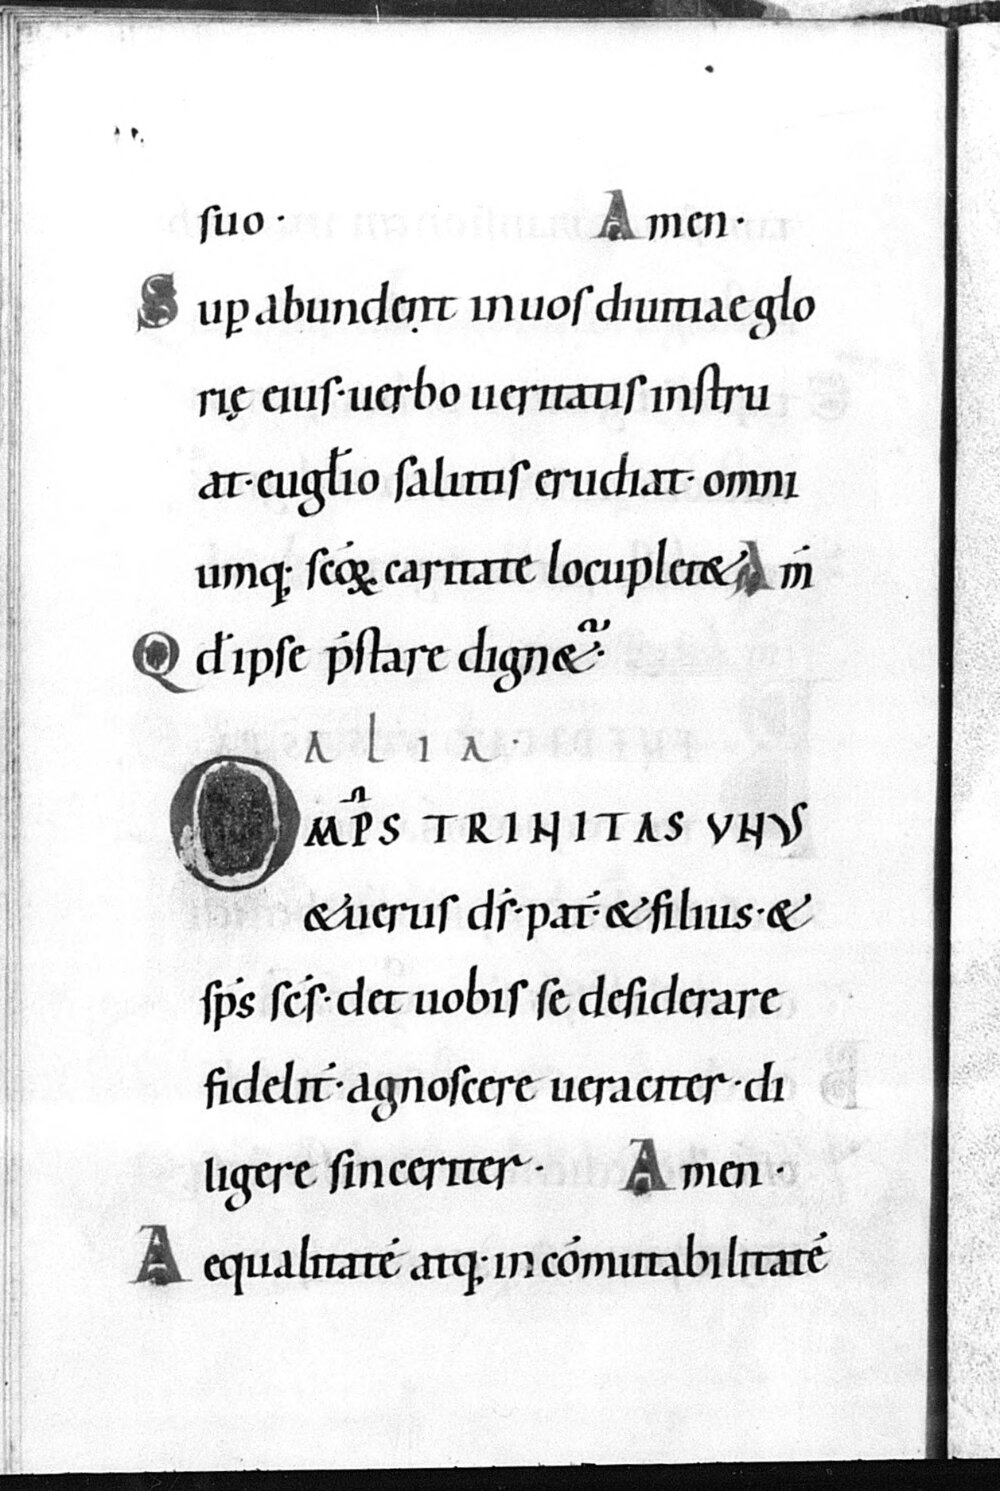 suo · Amen ·
Sup̱ abundent inuos diuinae glo
rię eius · uerbo ueritatis instru
at · eugl̄io salutis erudiat · omni
umq; scōꝝ caritate locuplet& Am̄
Qd̄ ipse p̄stare dign&ur ·
ALIA ·
OMP̄S TRINITAS VNVS
&uerus ds̄ · pat̄ · & filius · &
sp̄s scs̄ · det uobis se desiderare
fidelit̄ · agnoscere ueraciter · di
ligere sinceriter · Amen ·
Aequalitatē atq; incōmutabilitatē